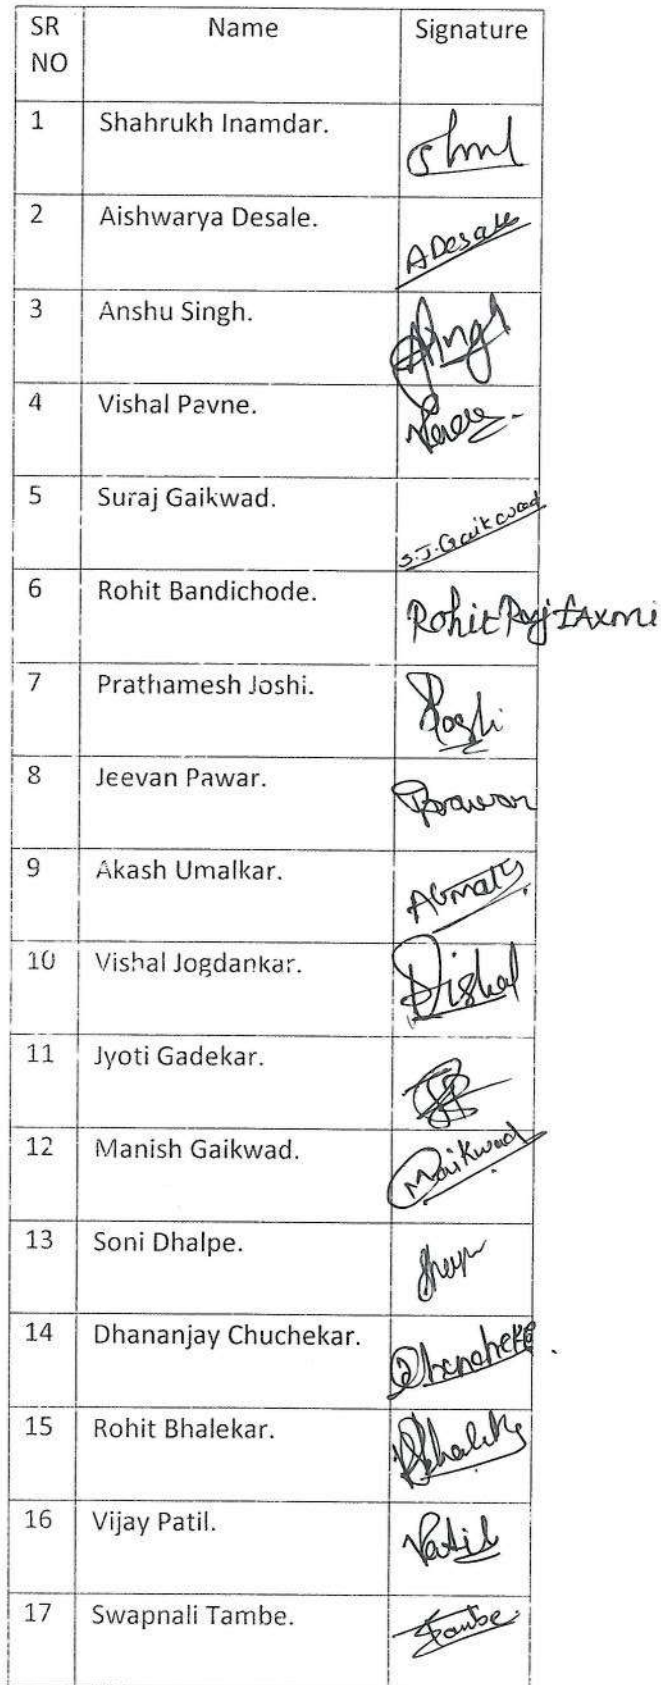 SR NO Name Signature
1 Shahrukh Inamdar.
2 Aishwarya Desale. A Desale
3 Anshu Singh.
4 Vishal Pavne.
5 Suraj Gaikwad. S.J. Gaikwad
6 Rohit Bandichode. Rohit Raj Laxmi
7 Prathamesh Joshi. Joshi
8 Jeevan Pawar. Pawar
9 Akash Umalkar.
10 Vishal Jogdankar. Vishal
11 Jyoti Gadekar.
12 Manish Gaikwad. Maikwad
13 Soni Dhalpe.
14 Dhananjay Chuchekar.
15 Rohit Bhalekar.
16 Vijay Patil. Patil
17 Swapnali Tambe. Tambe